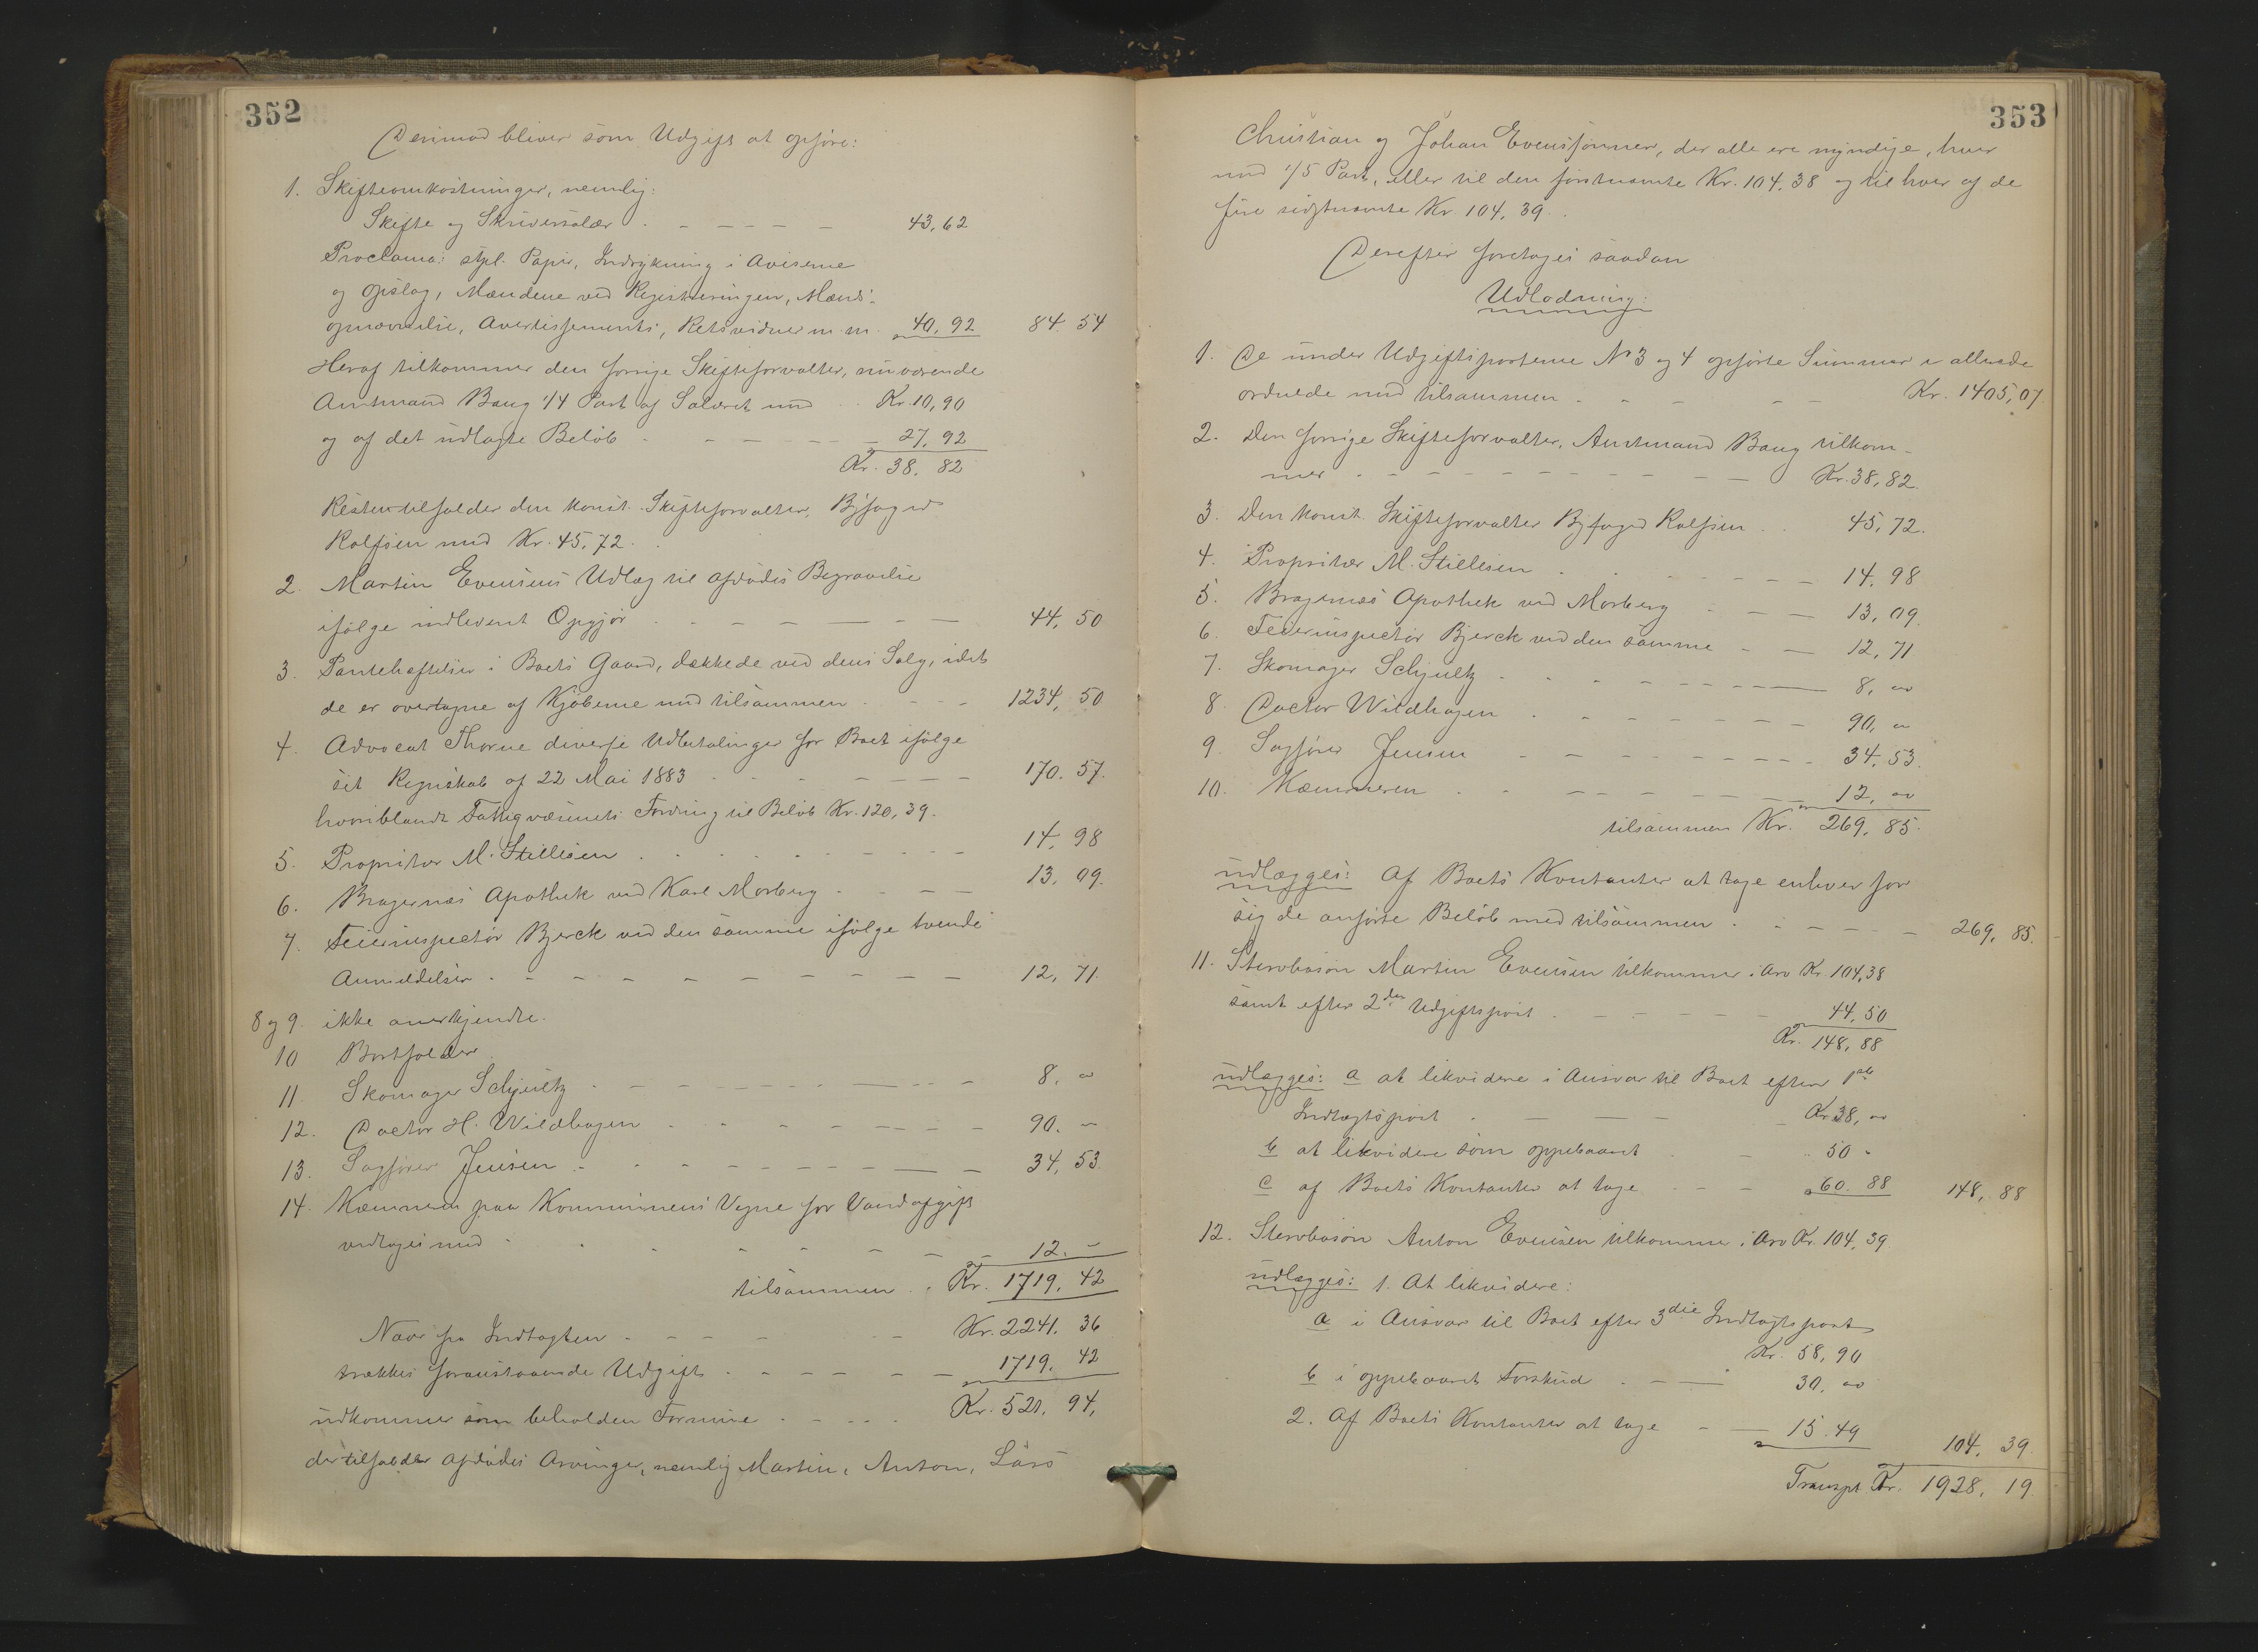 352
Derimod bliver som Udgift at opføre:
1. Skifteomkostninger, nemlig:
Skifte og Skriversalær . - - - - - 43,62
Proclama: stpl. Papir, Indrykning i Aviserne
og Opslag, Mændene ved Registreringen, Mænds-
opnævnelse, Avertissements, Retsvidner m. m. 40,92 84 54
Heraf tilkommer den forrige Skifteforvalter, nuværende
Amtmand Bang 1/4 Part af Salæret med . . Kr. 10,90
og af det udlagte Beløb - - - - - - 27,92
Kr. 38,82
Resten tilfalder den konst. Skifteforvalter, Byfoged
Rolfsen med Kr. 45,72.
2. Martin Evensens Udlæg til afdødes Begravelse
ifølge indleveret Opgjør . - - - - - - 44,50
3. Pantehæftelser i Boets Gaard, dækkede ved dens Salg, idet
de er overtagne af Kjøberne med tilsammen . - - - 1234,50
4. Advocat Thorne diverse Udbetalinger for Boet ifølge
sit Regnskab af 22 Mai 1883 . - - - - - - 170.57.
hvoriblandt Fattigvæsenets Fordring til Beløb Kr. 120,39.
5. Propritær M. Stillesen . . . - - - 14,98
6. Bragernæs Apothek ved Karl Morberg . - - - 13,09.
7. Feierinspectør Bjerck ved den samme ifølge tvende
Anmeldelser . - - - - - - - - - 12,71.
8 og 9. ikke anerkjendte.
10 Bortfalder
11. Skomager Schjultz . - - - - - - - 8, "
12. Doctor H. Wildhagen . - - - - - - 90. -
13. Sagfører Jensen . - - - - - - - 34,53
14. Kæmneren paa Kommunens Vegne for Vandafgift
vedtages med . . . - - - - - 12. -
tilsammen . . Kr. 1719,42
Naar fra Indtægten . - - - - - Kr. 2241.36
trækkes foranstaaende Udgift . - - - - - 1719.42
udkommer som beholden Formue . - - - . Kr. 521.94,
der tilfalder afdødes Arvinger, nemlig Martin, Anton, Lars
353
Christian og Johan Evenssønner, der alle ere myndige, hver
med 1/5 Part, eller til den førstnævnte Kr. 104,38 og til hver af de
fire sidstnævnte Kr. 104,39.
Derefter foretages saadan
Udlodning:
1. De under Udgiftsposterne No 3 og 4 opførte Summer er allerede
ordnede med tilsammen . - - - - - Kr. 1405,07.
2. Den forrige Skifteforvalter, Amtmand Bang tilkom-
mer . - - - - - - - - - - Kr. 38,82.
3. Den konst. Skifteforvalter Byfoged Rolfsen . . 45,72.
4. Propritær M. Stillesen . . - - - - 14,98
5. Bragernæs Apothek ved Morberg - - - 13,09.
6. Feierinspectør Bjerck ved den samme - - 12,71
7. Skomager Schjultz . - - - - - - 8, "
8. Doctor Wildhagen . - - - - - - 90, "
9. Sagfører Jensen - - - - - - - 34,53.
10. Kæmneren . . - - - - - - 12, "
tilsammen Kr. 269,85.
udlægges: Af Boets Kontanter at tage enhver for
sig de anførte Beløb med tilsammen . - - - - - 269,85.
11. Stervbosøn Martin Evensen tilkommer i Arv Kr. 104,38
samt efter 2den Udgiftspost . - - - - - 44,50
Kr. 148,88
udlægges: a at likvidere i Ansvar til Boet efter 1ste
Indtægtspost . - - - - Kr. 38, "
b at likvidere som oppebaaret . - . . 50 -
c af Boets Kontanter at tage - - - 60.88 148,88
12. Stervbosøn Anton Evensen tilkommer i Arv Kr. 104,39
udlægges: 1. At likvidere:
a i Ansvar til Boet efter 3die Indtægtspost
Kr. 58,90
b i oppebaaret Forskud . - - 30, "
2. Af Boets Kontanter at tage - - 15.49 104,39.
Transpt. Kr. 1928,19.